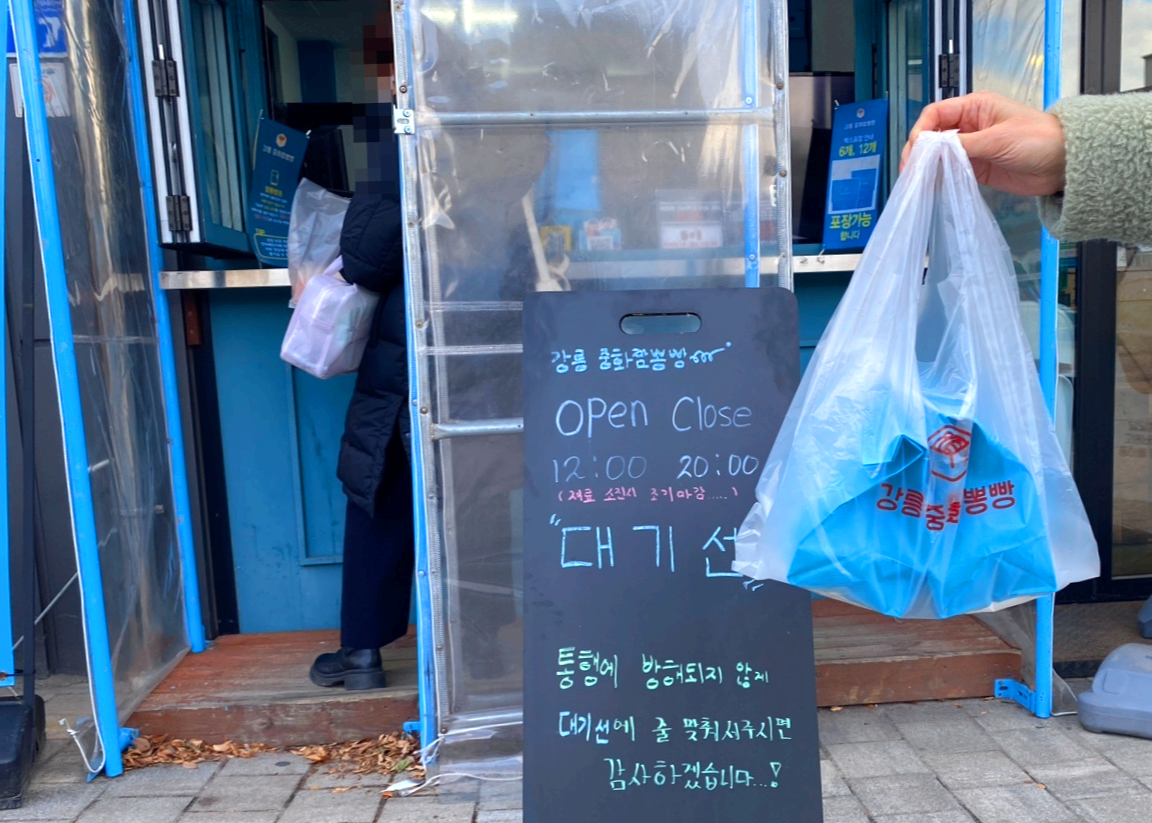 강릉 중화짬뽕빵
open Close
12:00 20:00
(재료 소진시 조기마감....)
"대기 선"
통행에 방해되지 않게
대기선에 줄 맞춰서주시면
감사하겠습니다...!
6개, 12개
포장가능
합니다
강릉중화짬뽕빵